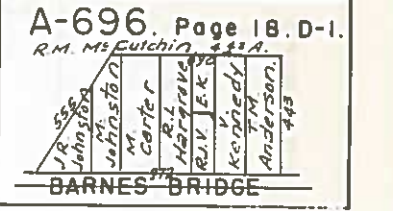 A-696. Page 18. D-1.
R.M. McCutchin 448 A.
690
555
J.R. Johnston
M. Johnston
M. Carter
R.L. Hargrove
R.J.V.
E.K.
V. Kennedy
T.M. Anderson.
443
972
BARNES BRIDGE